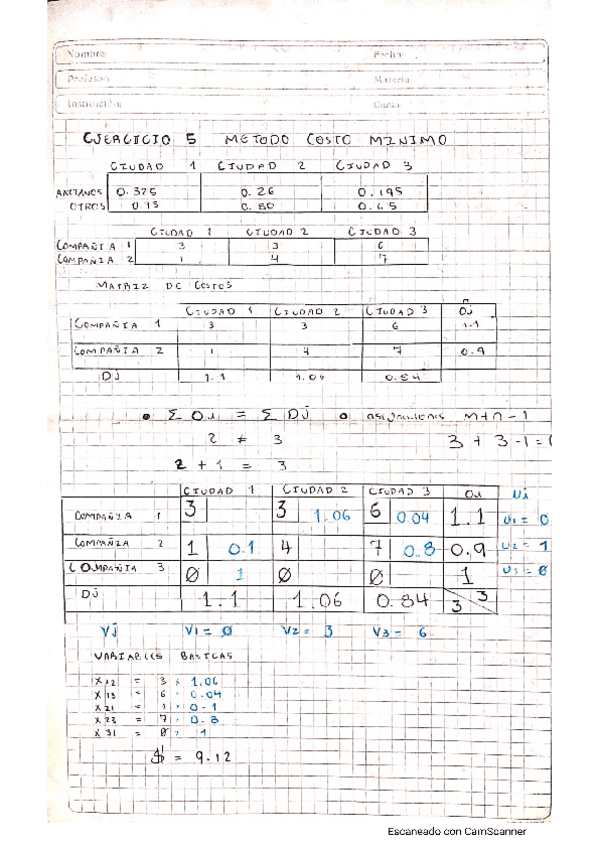 Nombre: Fecha:
Profesor: Materia:
Institución: Curso:
EJERCICIO 5 METODO COSTO MINIMO
CIUDAD 1 CIUDAD 2 CIUDAD 3
ANCIANOS 0.375 0.26 0.195
OTROS 0.80 0.65
CIUDAD 1 CIUDAD 2 CIUDAD 3
COMPAÑIA 1 3 3 6
COMPAÑIA 2 1 4 7
MATRIZ DE COSTOS
CIUDAD 1 CIUDAD 2 CIUDAD 3 Oi
COMPAÑIA 1 3 3 6 1.1
COMPAÑIA 2 1 4 7 0.9
DJ 1.1 1.06 0.84
• Σ Oi = Σ DJ • asignaciones m+n-1
2 ≠ 3 3 + 3 -1 =
2 + 1 = 3
CIUDAD 1 CIUDAD 2 CIUDAD 3 Oi Ui
COMPAÑIA 1 3 3 1.06 6 0.04 1.1 U1 = 0
COMPAÑIA 2 1 0.1 4 7 0.8 0.9 U2 = 1
COMPAÑIA 3 Ø 1 Ø Ø 1 U3 = Ø
DJ 1.1 1.06 0.84 3 3
VJ V1 = Ø V2 = 3 V3 = 6
VARIABLES BASICAS
X12 = 3 * 1.06
X13 = 6 * 0.04
X21 = 1 * 0.1
X23 = 7 * 0.8
X31 = Ø * 1
$ = 9.12
Escaneado con CamScanner